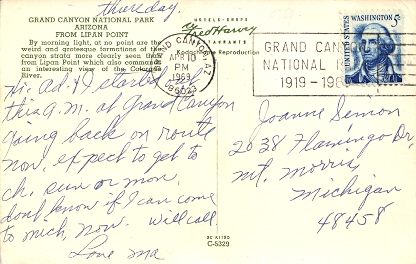 Thursday.
GRAND CANYON NATIONAL PARK
ARIZONA
FROM LIPAN POINT
By morning light, at no point are the
weird and grotesque formations of the
canyon strata more clearly seen than
from Lipan Point which also commands
an interesting view of the Colorado
River.
HOTELS - SHOPS
Fred Harvey
RESTAURANTS
Kodachrome Reproduction
GRAND CANYON, AZ
APR 10
PM
1969
86023
GRAND CANYON
NATIONAL
1919-19
WASHINGTON
5¢
UNITED STATES
POSTAGE
Hi. started
this a.m. at Grand Canyon
going back on route
now. expect to get to
ch. sun or mon.
don't know if I can come
to mich, now. Will call.
Love ma
Joanne Simon
2038 Flamingo Dr,
Mt. Morris,
Michigan
48458
C-5329